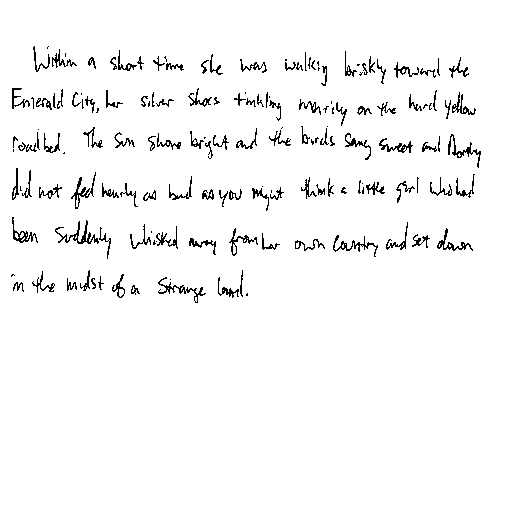 Within a short time she was walking briskly toward the
Emerald City, her silver shoes tinkling merrily on the hard yellow
road bed. The sun shone bright and the birds sang sweet and Dorothy
did not feel nearly as bad as you might think a little girl who had
been suddenly whisked away from her own country and set down
in the midst of a strange land.